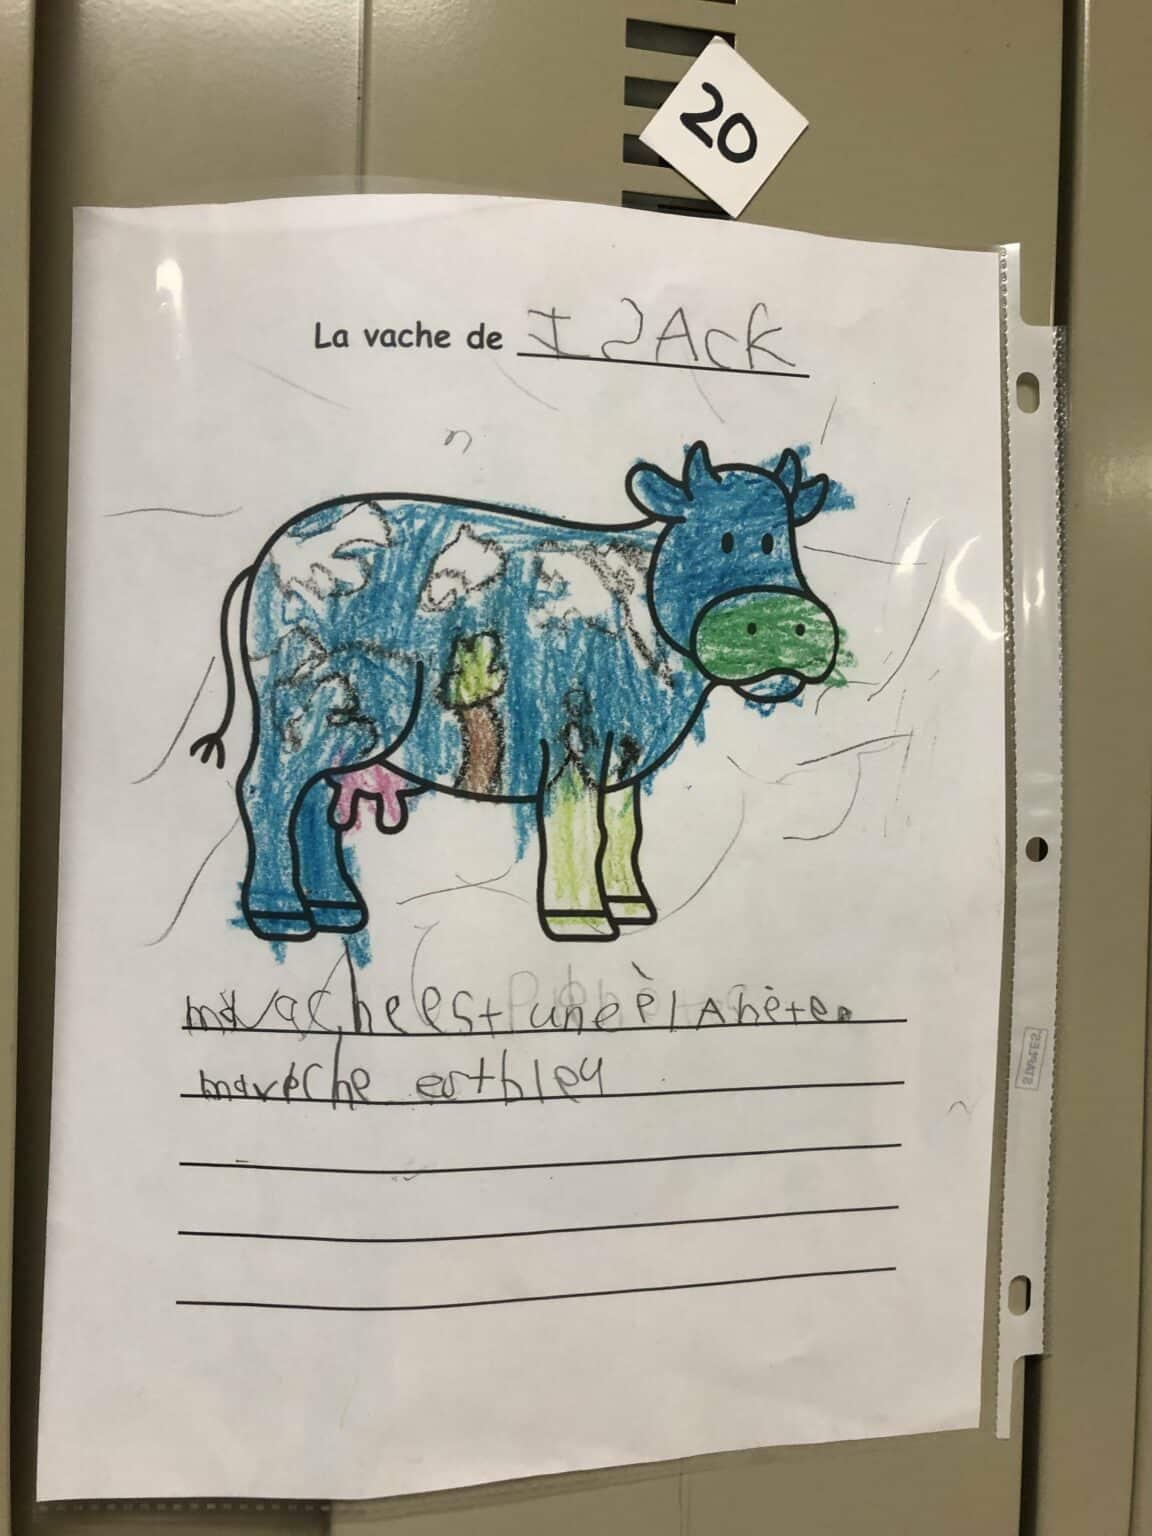 20
La vache de ISAck
ma vache est une plAnète.
ma vache est bleu
STAPLES